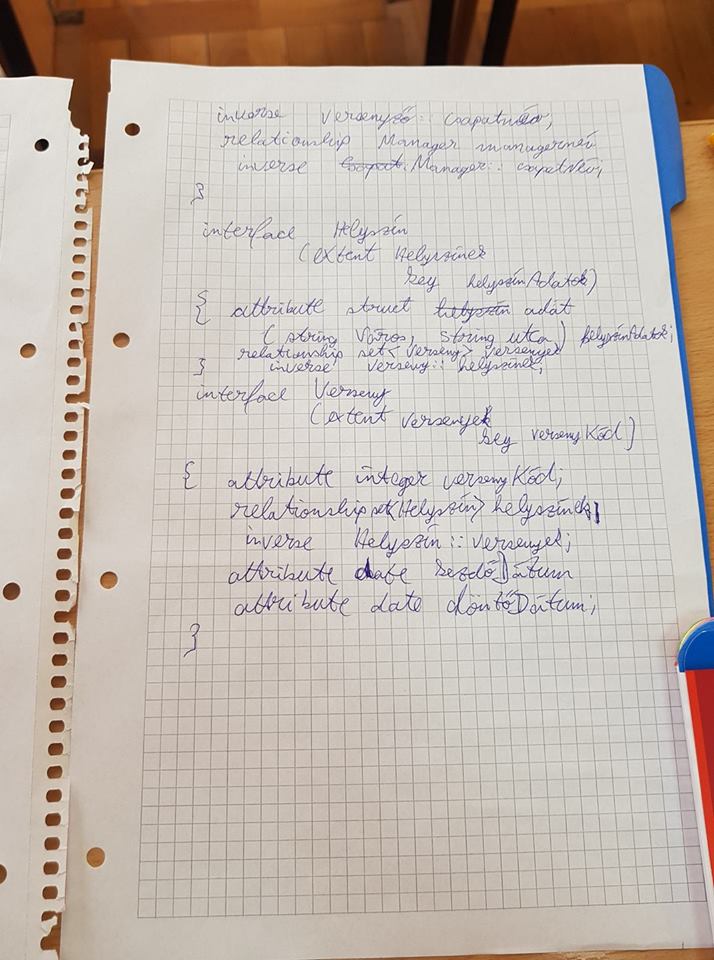 inverse Versenyző:: csapatnév;
relationship Manager managernév
inverse Csapat. Manager:: csapatNév;
}
interface Helyszín
(extent Helyszínek
key helyszínAdatok)
{ attribute struct helyszín adat
( string Város, string utca ) helyszínAdatok;
relationship set<Verseny> versenyek
} inverse verseny:: helyszínek;
interface Verseny
(extent versenyek
key versenyKód)
{ attribute integer versenyKód;
relationship set<Helyszín> helyszínek
inverse Helyszín :: versenyek;
attribute date kezdőDátum
attribute date döntőDátum;
}